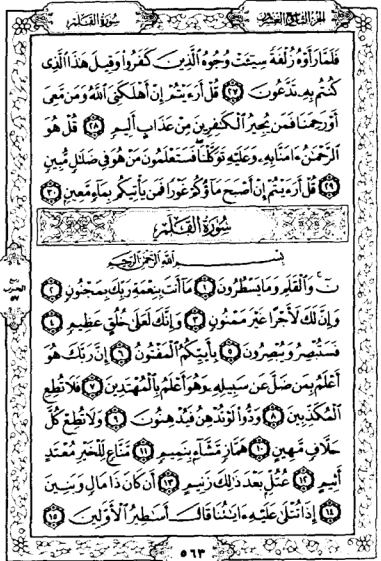 سُورَةُ القَلَمِ الجزء التاسع والعشرون
فَلَمَّا رَأَوْهُ زُلْفَةً سِيٓـَٔتْ وُجُوهُ ٱلَّذِينَ كَفَرُوا۟ وَقِيلَ هَٰذَا ٱلَّذِى
كُنتُم بِهِۦ تَدَّعُونَ ٢٧ قُلْ أَرَءَيْتُمْ إِنْ أَهْلَكَنِىَ ٱللَّهُ وَمَن مَّعِىَ
أَوْ رَحِمَنَا فَمَن يُجِيرُ ٱلْكَٰفِرِينَ مِنْ عَذَابٍ أَلِيمٍ ٢٨ قُلْ هُوَ
ٱلرَّحْمَٰنُ ءَامَنَّا بِهِۦ وَعَلَيْهِ تَوَكَّلْنَا فَسَتَعْلَمُونَ مَنْ هُوَ فِى ضَلَٰلٍ مُّبِينٍ
٢٩ قُلْ أَرَءَيْتُمْ إِنْ أَصْبَحَ مَآؤُكُمْ غَوْرًا فَمَن يَأْتِيكُم بِمَآءٍ مَّعِينٍۭ ٣٠
سُورَةُ القَلَمِ
بِسْمِ ٱللَّهِ ٱلرَّحْمَٰنِ ٱلرَّحِيمِ
نٓ وَٱلْقَلَمِ وَمَا يَسْطُرُونَ ١ مَآ أَنتَ بِنِعْمَةِ رَبِّكَ بِمَجْنُونٍ ٢
وَإِنَّ لَكَ لَأَجْرًا غَيْرَ مَمْنُونٍ ٣ وَإِنَّكَ لَعَلَىٰ خُلُقٍ عَظِيمٍ ٤
فَسَتُبْصِرُ وَيُبْصِرُونَ ٥ بِأَييِّكُمُ ٱلْمَفْتُونُ ٦ إِنَّ رَبَّكَ هُوَ
أَعْلَمُ بِمَن ضَلَّ عَن سَبِيلِهِۦ وَهُوَ أَعْلَمُ بِٱلْمُهْتَدِينَ ٧ فَلَا تُطِعِ
ٱلْمُكَذِّبِينَ ٨ وَدُّوا۟ لَوْ تُدْهِنُ فَيُدْهِنُونَ ٩ وَلَا تُطِعْ كُلَّ
حَلَّافٍ مَّهِينٍ ١٠ هَمَّازٍ مَّشَّآءٍۭ بِنَمِيمٍ ١١ مَّنَّاعٍ لِّلْخَيْرِ مُعْتَدٍ
أَثِيمٍ ١٢ عُتُلٍّۭ بَعْدَ ذَٰلِكَ زَنِيمٍ ١٣ أَن كَانَ ذَا مَالٍ وَبَنِينَ
١٤ إِذَا تُتْلَىٰ عَلَيْهِ ءَايَٰتُنَا قَالَ أَسَٰطِيرُ ٱلْأَوَّلِينَ ١٥
٥٦٣